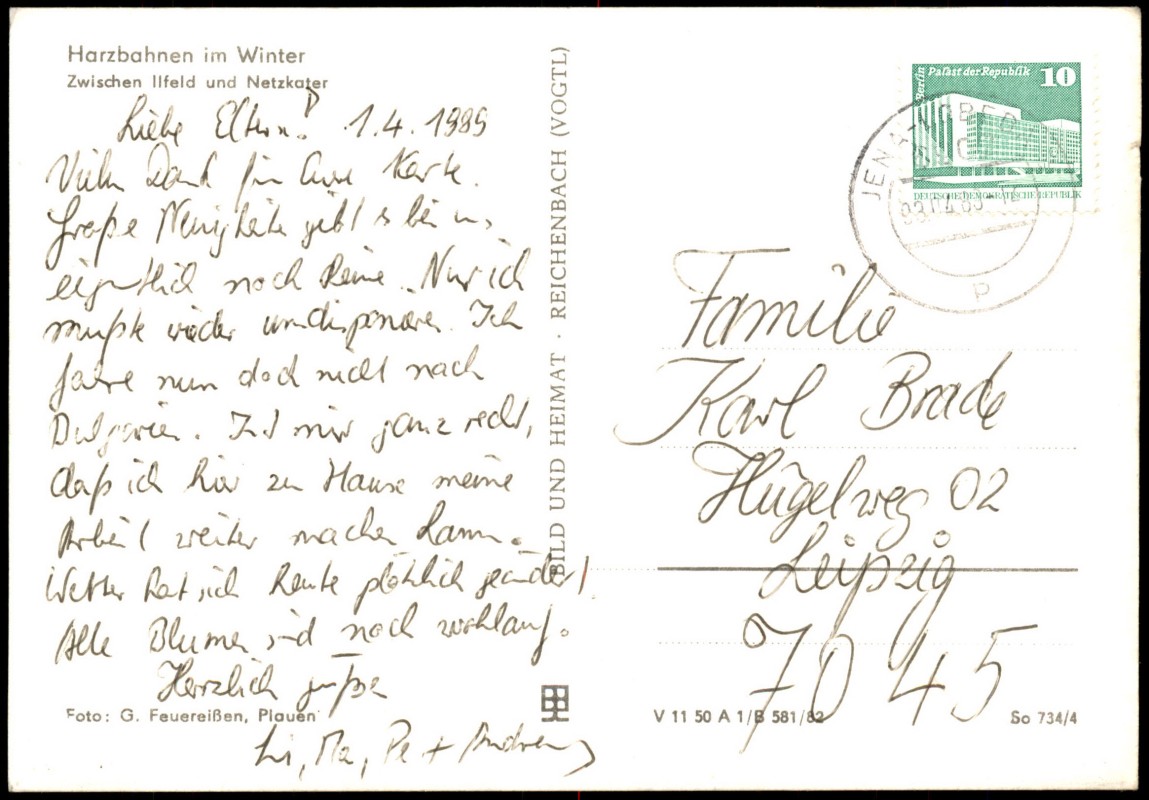 Harzbahnen im Winter
Zwischen Ilfeld und Netzkater
Liebe Eltern! 1.4.1989
Vielen Dank für Eure Karte.
Große Neuigkeiten gibt es bei uns
eigentlich noch keine. Nur ich
mußte wieder umdisponieren. Ich
fahre nun doch nicht nach
Bulgarien. Ist mir ganz recht,
daß ich hier zu Hause meine
Arbeit weiter machen kann.
Wetter hat sich heute plötzlich geändert!
Alle Blumen sind noch wohlauf.
Herzlich grüßen
Foto: G. Feuereißen, Plauen
Ma, Pe + Andreas
BILD UND HEIMAT · REICHENBACH (VOGTL)
Berlin Palast der Republik 10
DEUTSCHE DEMOKRATISCHE REPUBLIK
JENA
P
Familie
Karl Brade
Hügelweg 02
Leipzig
7045
V 11 50 A 1/B 581/82
So 734/4